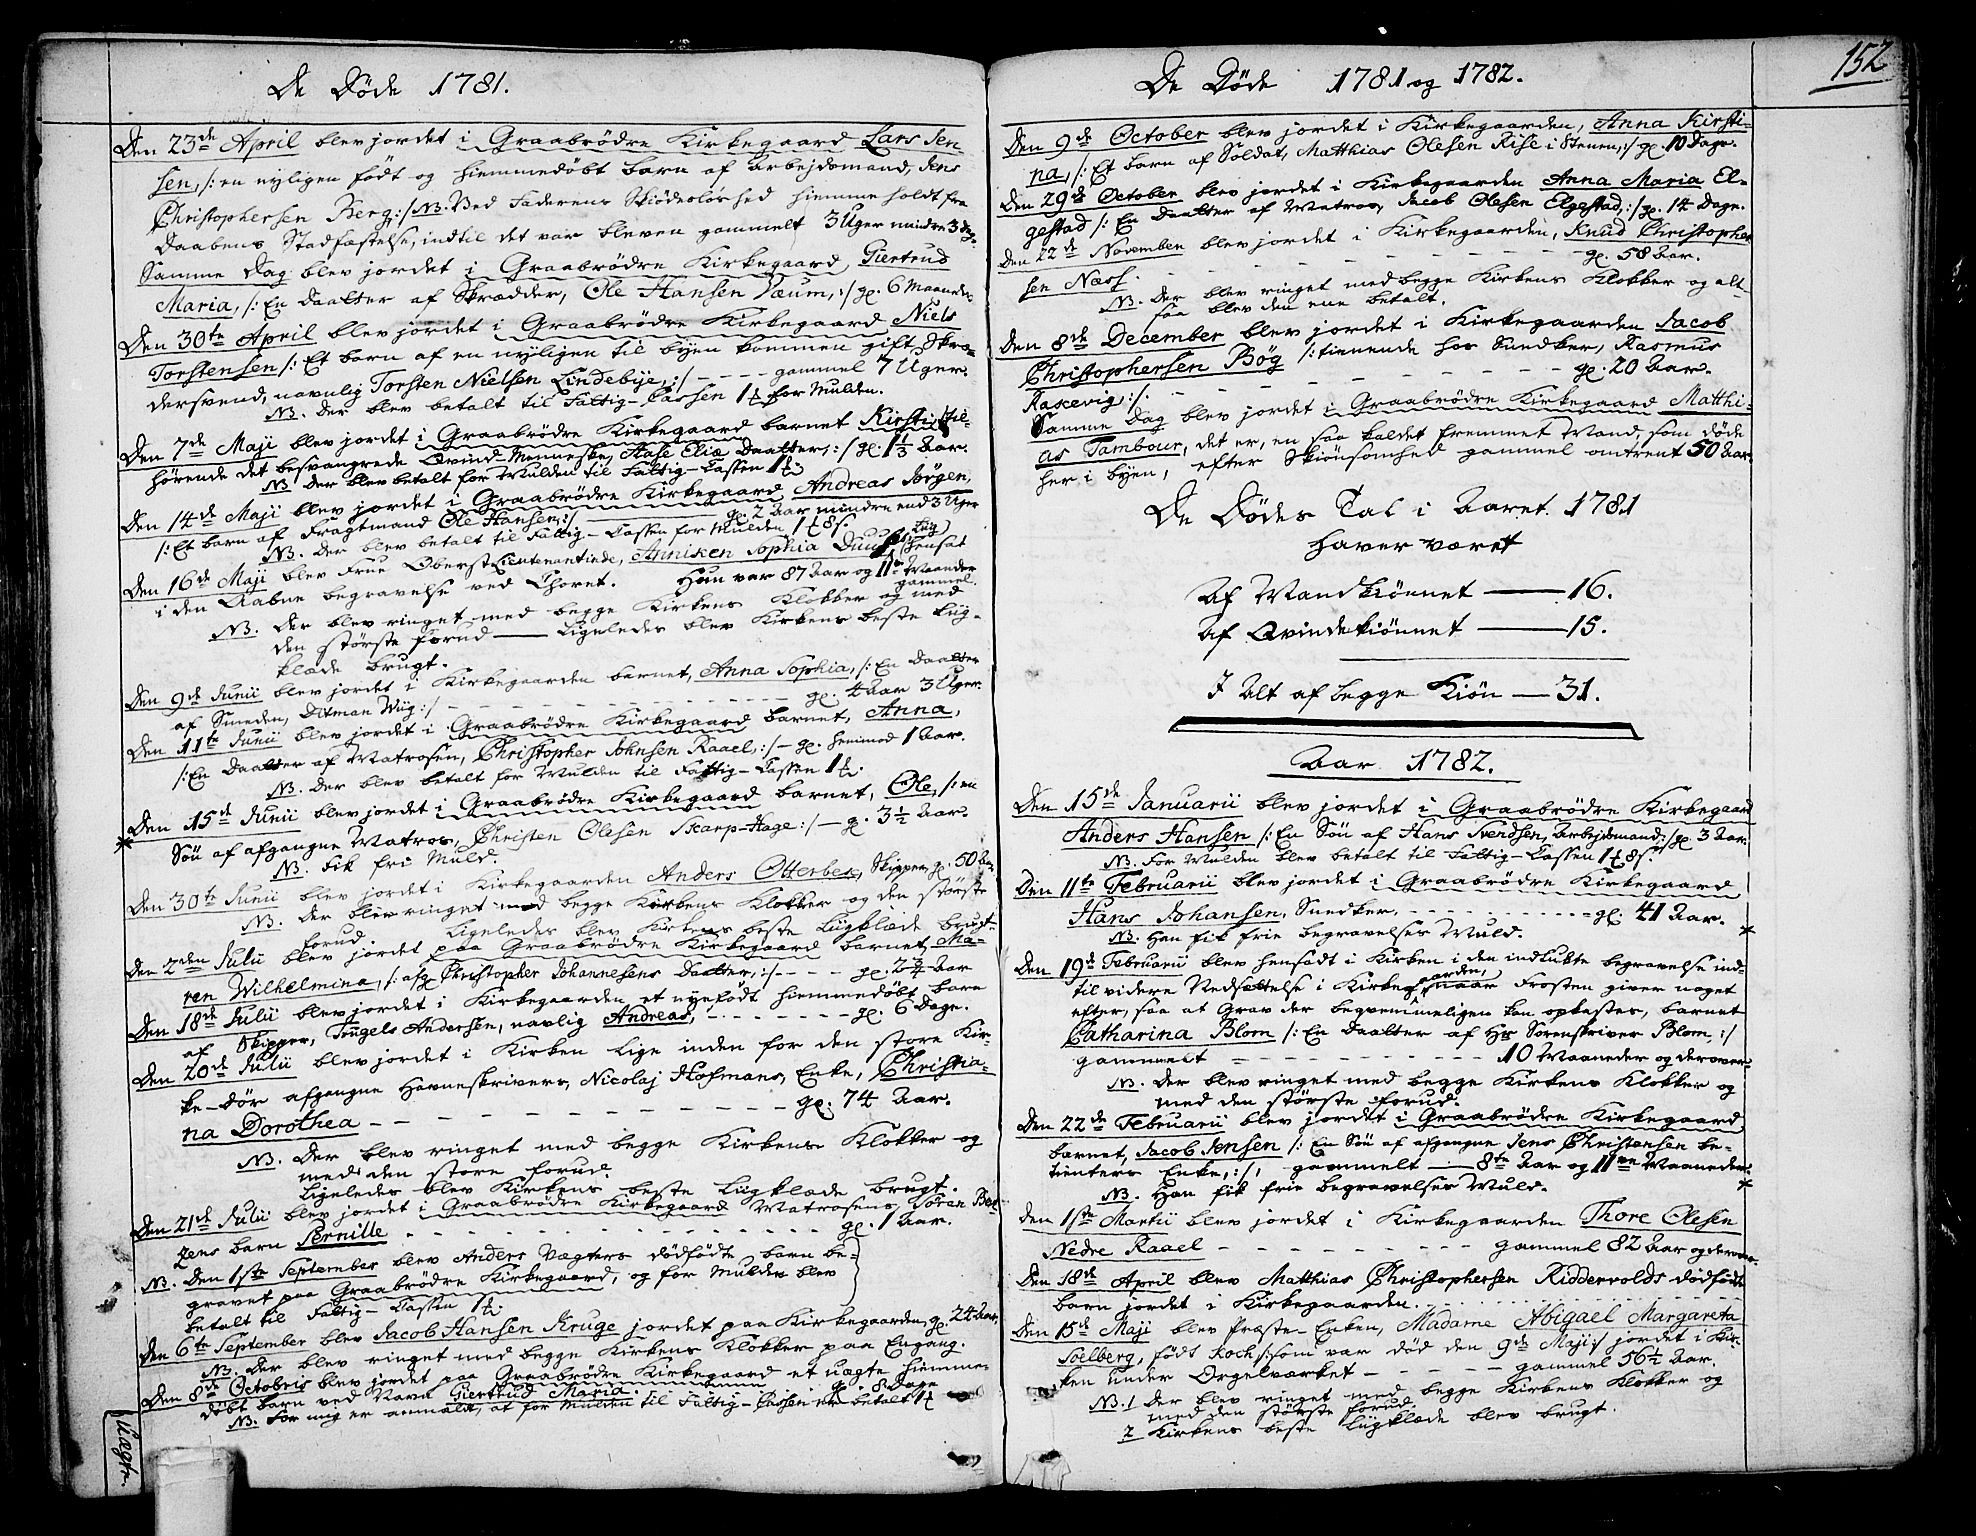 De Døde 1781.
Den 23de April blev jordet i Graabrødre Kirkegaard Lars Jen
sen, /: en nyligen født og hiemmedøbt barn af Arbejdsmand, Jens
Christophersen Berg :/ NB. Ved Faderens Skiødesløshed hiemme holdt fra
Daabens Stadfæstelse, indtil det var bleven gammelt 3 Uger mindre 3 dag.
Samme Dag blev jordet i Graabrødre Kirkegaard Giertrud
Maria, /: En Daatter af Skrædder, Ole Hansen Væum, :/ gl. 6 Maaneder
Den 30te April blev jordet i Graabrødre Kirkegaard Niels
Torstensen /: Et barn af en nyligen til byen kommen gift Skræ-
dersvend, navnlig Torsten Nielsen Lindebye, :/ - - - - gammel 7 Uger.
NB. Der blev betalt til Fattig-Cassen 1 for Mulden.
Den 7de Maji blev jordet i Graabrødre Kirkegaard barnet Kirsti, til-
hørende det besvangrede Qvind-Menneske, Aase Eliæ Daatter, :/ gl. 1 1/3 Aar.
NB. Der blev betalt for Mulden til Fattig-Cassen
Den 14de Maji blev jordet i Graabrødre Kirkegaard Andreas Jørgen,
/: Et barn af Fragtmand Ole Hansen, :/ gl. 2 Aar mindre end 3 Uger
NB. Der blev betalt til Fattig-Cassen for Mulden
Den 16de Maji blev Frue Oberst Lieutenantinde, Anniken Sophia hensat
i den Aabne begravelse ved Choret. Hun var 87 Aar og 11 Maaneder
gammel.
NB. Der blev ringet med begge Kirkens Klokker og med
den største forud — Ligeledes blev Kirkens beste Liig-
klæde brugt.
Den 9de Junii blev jordet i Kirkegaarden barnet, Anna Sophia, /: En Daatter
af Smeden, Ditman Wiig :/ - - - - gl. 4 Aar 3 Uger.
Den 11te Junii blev jordet i Graabrødre Kirkegaard barnet, Anna,
/: En Daatter af Matrosen, Christopher Johnsen Raael, :/ - gl. henimod 1 Aar.
NB. Der blev betalt for Mulden til Fattig-Cassen
Den 15de Junii blev jordet i Graabrødre Kirkegaard barnet, Ole, /: en
Søn af afgangne Matros, Christen Olesen Skarp-Hage :/ - g. 3 1/2 Aar.
NB. Fik fri Muld.
Den 30te Junii blev jordet i Kirkegaarden Anders Otterbek, Skipper, g. 50 Aar
NB. Der blev ringet med begge Kirkens Klokker og den største
forud Ligeledes blev Kirkens beste Liigklæde brugt.
Den 2den Julii blev jordet paa Graabrødre Kirkegaard barnet Ma-
ren Wilhelmina, /: afg. Christopher Johannesens Daatter, :/ - - - - gl. 2 3/4 Aar
Den 18de Julii blev jordet i Kirkegaarden et nyefødt hiemmedøbt barn
af Skipper, Trugels Andersen, navnlig Andreas, - - - - gl. 6 Dage.
Den 20de Julii blev jordet i Kirken lige inden for den store Kir-
ke-Dør afgangne Havneskrivers, Nicolaj Hofmans, Enke, Christia-
na Dorothea - - - - gl. 74 Aar.
NB. Der blev ringet med begge Kirkens Klokker og
med den store forud.
Ligeledes blev Kirkens beste Liigklæde brugt.
Den 21de Julii blev jordet i Graabrødre Kirkegaard Matrosens, Søren
barn Pernille - - - - gl. 1 Aar.
NB. Den 1ste September blev Anders Vægters dødfødte barn be-
gravet paa Graabrødre Kirkegaard, og for Mulden blev
betalt til Fattig-Cassen
Den 6te September blev Jacob Hansen Kruge jordet paa Kirkegaarden, gl. 24 Aar,
NB. Der blev ringet med begge Kirkens Klokker paa Engang.
Den 8de Octobris blev jordet paa Graabrødre Kirkegaard et uægte hiemme-
døbt barn ved Navn Giertrud Maria. g. 8 Dage
NB. For mig er anmeldt, at for Mulden til Fattig-Cassen er betalt
Uægte
De Døde 1781 og 1782.
152
Den 9de October blev jordet i Kirkegaarden, Anna Kirsti-
na, /: Et barn af Soldat, Matthias Olesen Riise i Steuren, :/ gl. 10 Dage.
Den 29de October blev jordet i Kirkegaarden Anna Maria El-
gestad /: En Daatter af Matros, Jacob Olesen Elgestad, :/ gl. 14 Dage.
Den 22de November blev jordet i Kirkegaarden, Knud Christopher
sen Næss. - - - - gl. 58 Aar.
NB. Der blev ringet med begge Kirkens Klokker og alt-
saa blev den ene betalt.
Den 8de December blev jordet i Kirkegaarden Jacob
Christophersen Bøg /: tienende hos Snedker, Rasmus
Raskevig :/. - - - - gl. 20 Aar.
Samme Dag blev jordet i Graabrødre Kirkegaard Matthi-
as Tambour, det er, en saa kaldet fremmet Mand, som døde
her i byen, efter Skiønsomhed gammel omtrent 50 Aar.
De Dødes Tal i Aaret 1781
haver været
Af Mandkiønnet — 16.
Af Qvindekiønnet — 15.
I Alt af begge Kiøn — 31.
Aar 1782.
Den 15de Januarii blev jordet i Graabrødre Kirkegaard
Anders Hansen /: En Søn af Hans Svendsen, Arbejdsmand :/ gl. 3 Aar.
NB. For Mulden blev betalt til Fattig-Cassen
Den 11te Februarii blev jordet i Graabrødre Kirkegaard
Hans Johansen, Snedker, - - - - gl. 41 Aar.
NB. Han fik frie begravelses Muld.
Den 19de Februarii blev hensadt i Kirken i den indlukte begravelse ind-
til videre Nedsættelse i Kirkegaarden, naar Frosten giver noget
efter, saa at Grav der beqvemmeligen kan opkastes, barnet
Catharina Blom /: En Daatter af Hr Sorenskriver Blom, :/
gammelt - - - - 10 Maaneder og derover
NB. Der blev ringet med begge Kirkens Klokker og
med den største forud.
Den 22de Februarii blev jordet i Graabrødre Kirkegaard
barnet, Jacob Jensen /: En Søn af afgangne Jens Christensen be-
tienters Enke, :/, gammelt — 8te Aar og 11ve Maaneder.
NB. Han fik frie begravelses Muld.
Den 1ste Martii blev jordet i Kirkegaarden Thore Olesen
Nedre Raael - - - - gammel 82 Aar og derover
Den 18de April blev Matthias Christophersen Riddervolds dødfødte
barn jordet i Kirkegaarden.
Den 15de Maji blev Præste-Enken, Madame Abigael Margareta
Soelberg, født Koch /: som var død den 9de Maji :/ jordet i Kir-
ken under Orgelværket - - - - gammel 56 1/2 Aar.
NB. 1 Der blev ringet med begge Kirkens Klokker og
med den største forud.
2 Kirkens beste Liigklæde blev brugt.